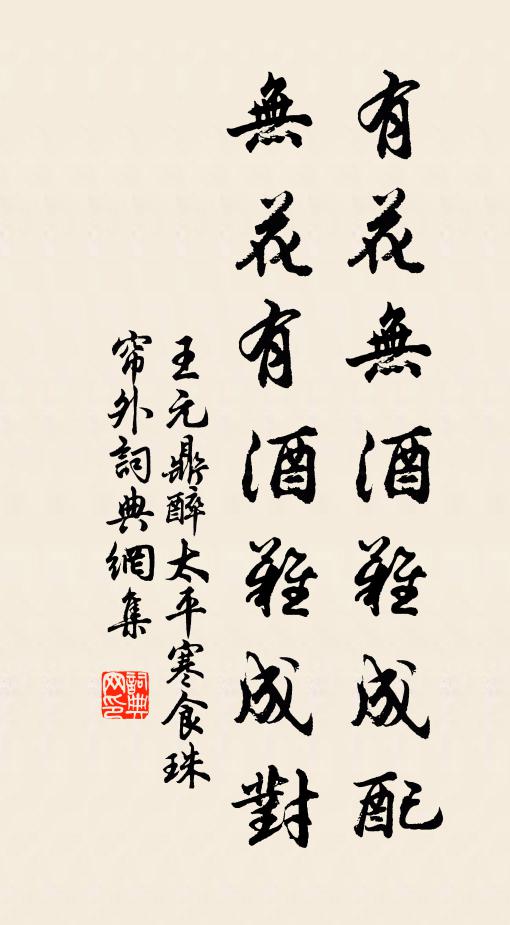 有花無酒難成配
無花有酒難成對
王元鼎醉太平寒食珠
帘外詞典網集
詞典
网印